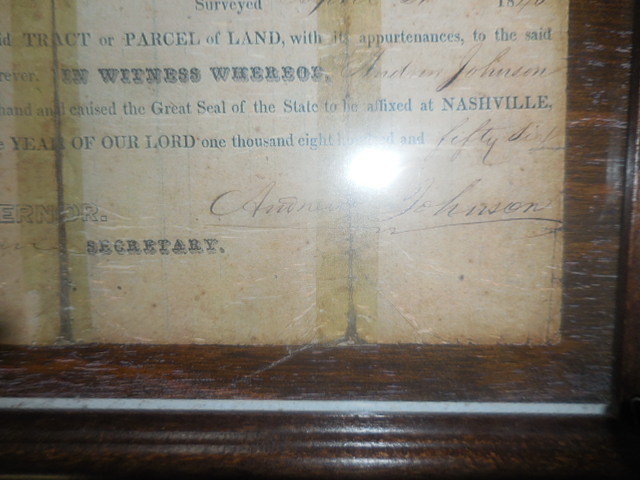 Surveyed 18
TRACT or PARCEL of LAND, with its appurtenances, to the said
IN WITNESS WHEREOF, Andrew Johnson
hand and caused the Great Seal of the State to be affixed at NASHVILLE,
YEAR OF OUR LORD one thousand eight hundred and fifty six
ERNOR. Andrew Johnson
SECRETARY.